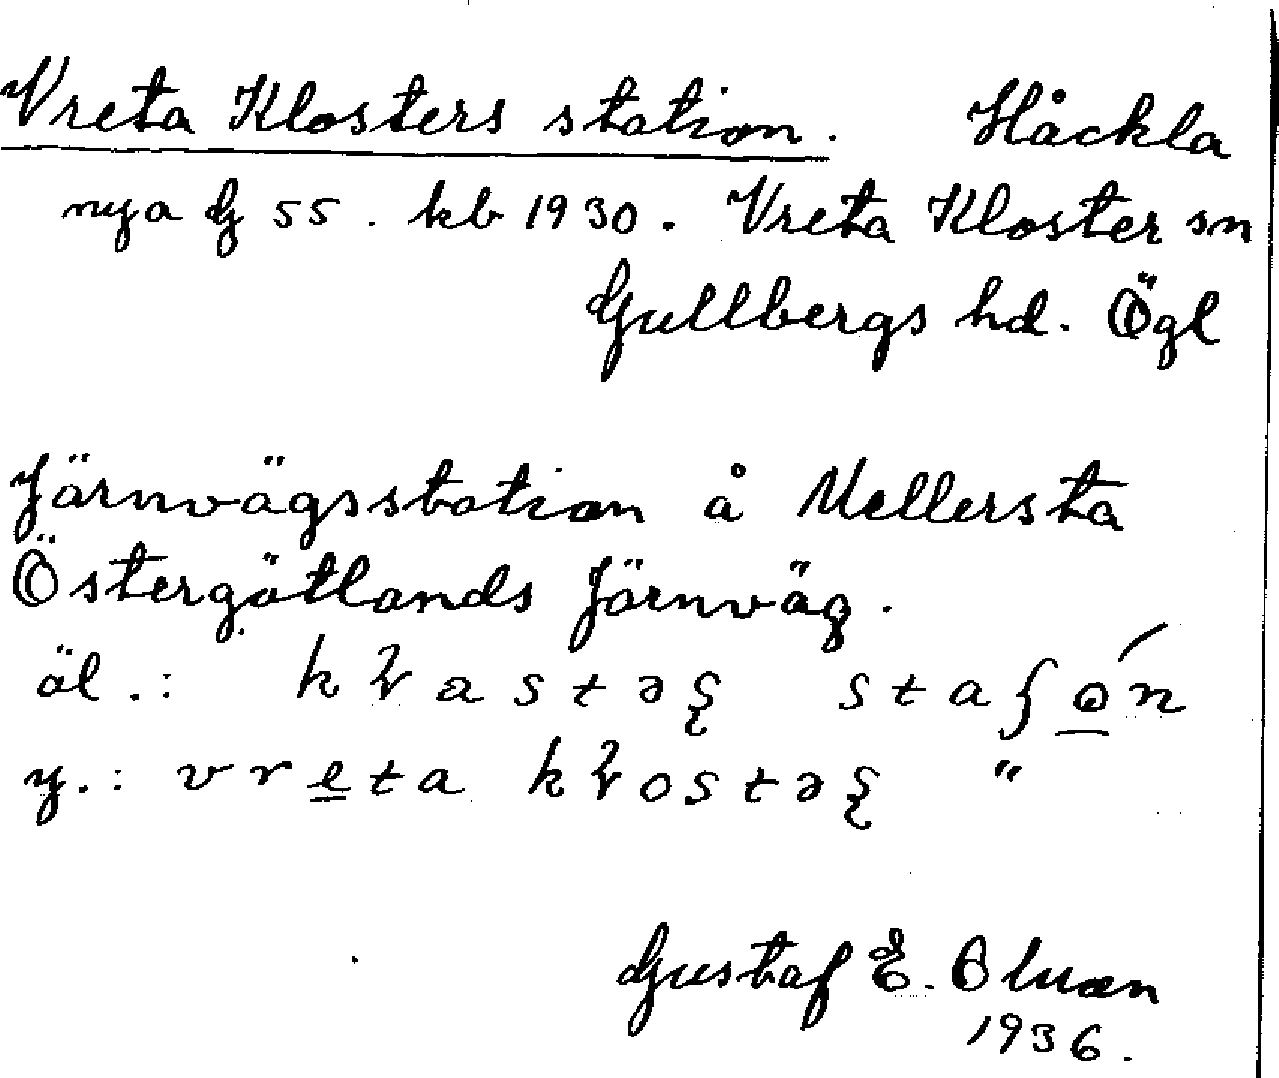 Vreta Klosters station. Håckla
nya G 55. kb 1930. Vreta Kloster sn
Gullbergs hd. Ögl
Järnvägsstation å Mellersta
Östergötlands Järnväg.
äl.: kɽastəʂ staʃǿn
y.: vreta kɽostəʂ "
Gustaf E.
1936.